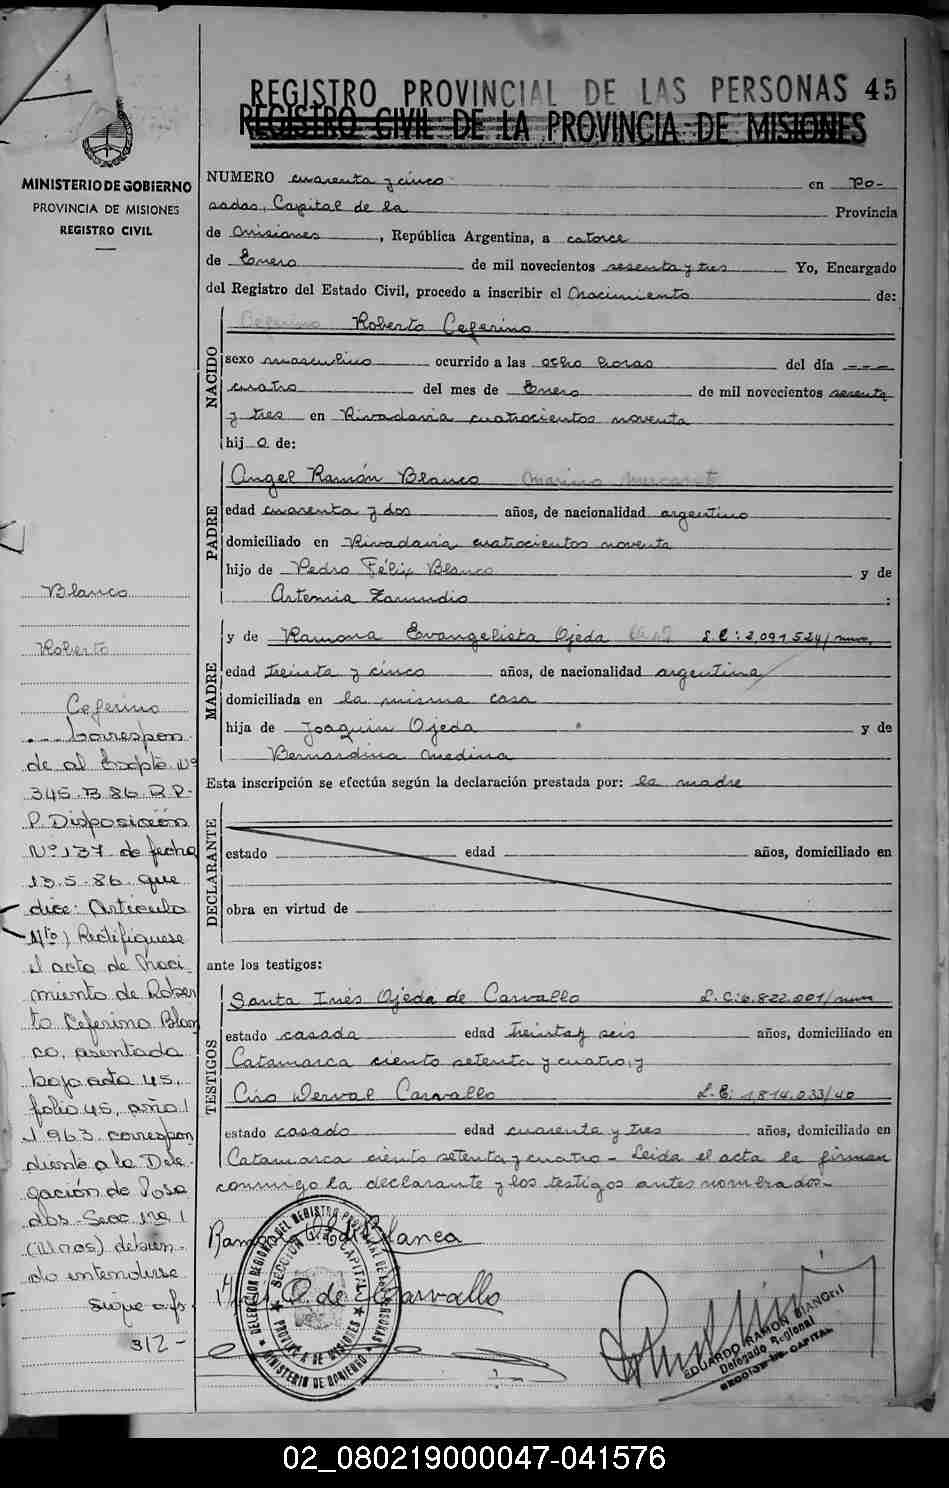 REGISTRO PROVINCIAL DE LAS PERSONAS 45
REGISTRO CIVIL DE LA PROVINCIA DE MISIONES
MINISTERIO DE GOBIERNO
PROVINCIA DE MISIONES
REGISTRO CIVIL
NUMERO cuarenta y cinco en Po-
sadas, Capital de la Provincia
de Misiones, República Argentina, a catorce
de Enero de mil novecientos sesenta y tres Yo, Encargado
del Registro del Estado Civil, procedo a inscribir el Nacimiento de:
NACIDO
Ceferino Roberto Ceferino
sexo masculino ocurrido a las ocho horas del día ---
cuatro del mes de Enero de mil novecientos sesenta
y tres en Rivadavia cuatrocientos noventa
hij o de:
PADRE
Angel Ramón Blanco
edad cuarenta y dos años, de nacionalidad argentino
domiciliado en Rivadavia cuatrocientos noventa
hijo de Pedro Félix Blanco y de
Artemia Zamudio :
MADRE
y de Ramona Evangelista Ojeda L.C: 2,091524/mnes,
edad treinta y cinco años, de nacionalidad argentina
domiciliada en la misma casa
hija de Joaquin Ojeda y de
Bernardina Medina
Esta inscripción se efectúa según la declaración prestada por: la madre
DECLARANTE
estado edad años, domiciliado en
obra en virtud de
ante los testigos:
TESTIGOS
Santa Inés Ojeda de Carvallo L.C:6.822.001/mnes
estado casada edad treinta y seis años, domiciliado en
Catamarca ciento setenta y cuatro, y
Ciro Derval Carvallo L.E: 1,814.033/40
estado casado edad cuarenta y tres años, domiciliado en
Catamarca ciento setenta y cuatro - Leida el acta la firman
conmigo la declarante y los testigos antes nombrados.-
Blanco
Roberto
Ceferino
... Correspon
de al Expte. Nº
345.B.86.R.P.
P. Disposición
Nº 137 de fecha
13.5.86. que
dice: Articulo
1to) Rectifiquese
el acta de Naci
miento de Rober
to Ceferino Blan
co, asentada
bajo acta 45,
folio 45, año
1963. correspon
diente a la Dele-
gación de Posa
das-Secc 1ra
(Unos) debien.
do entenderse
sigue a fs
312-
Blanca
O. de Carvallo
DELEGACION REGIONAL DEL REGISTRO PROVINCIAL DE LAS PERSONAS
SECCION 1ra CAPITAL
PROVINCIA DE MISIONES
MINISTERIO DE GOBIERNO
EDUARDO RAMON BIANCHI
Delegado Regional
SECCION 1ra. CAPITAL
02_080219000047-041576